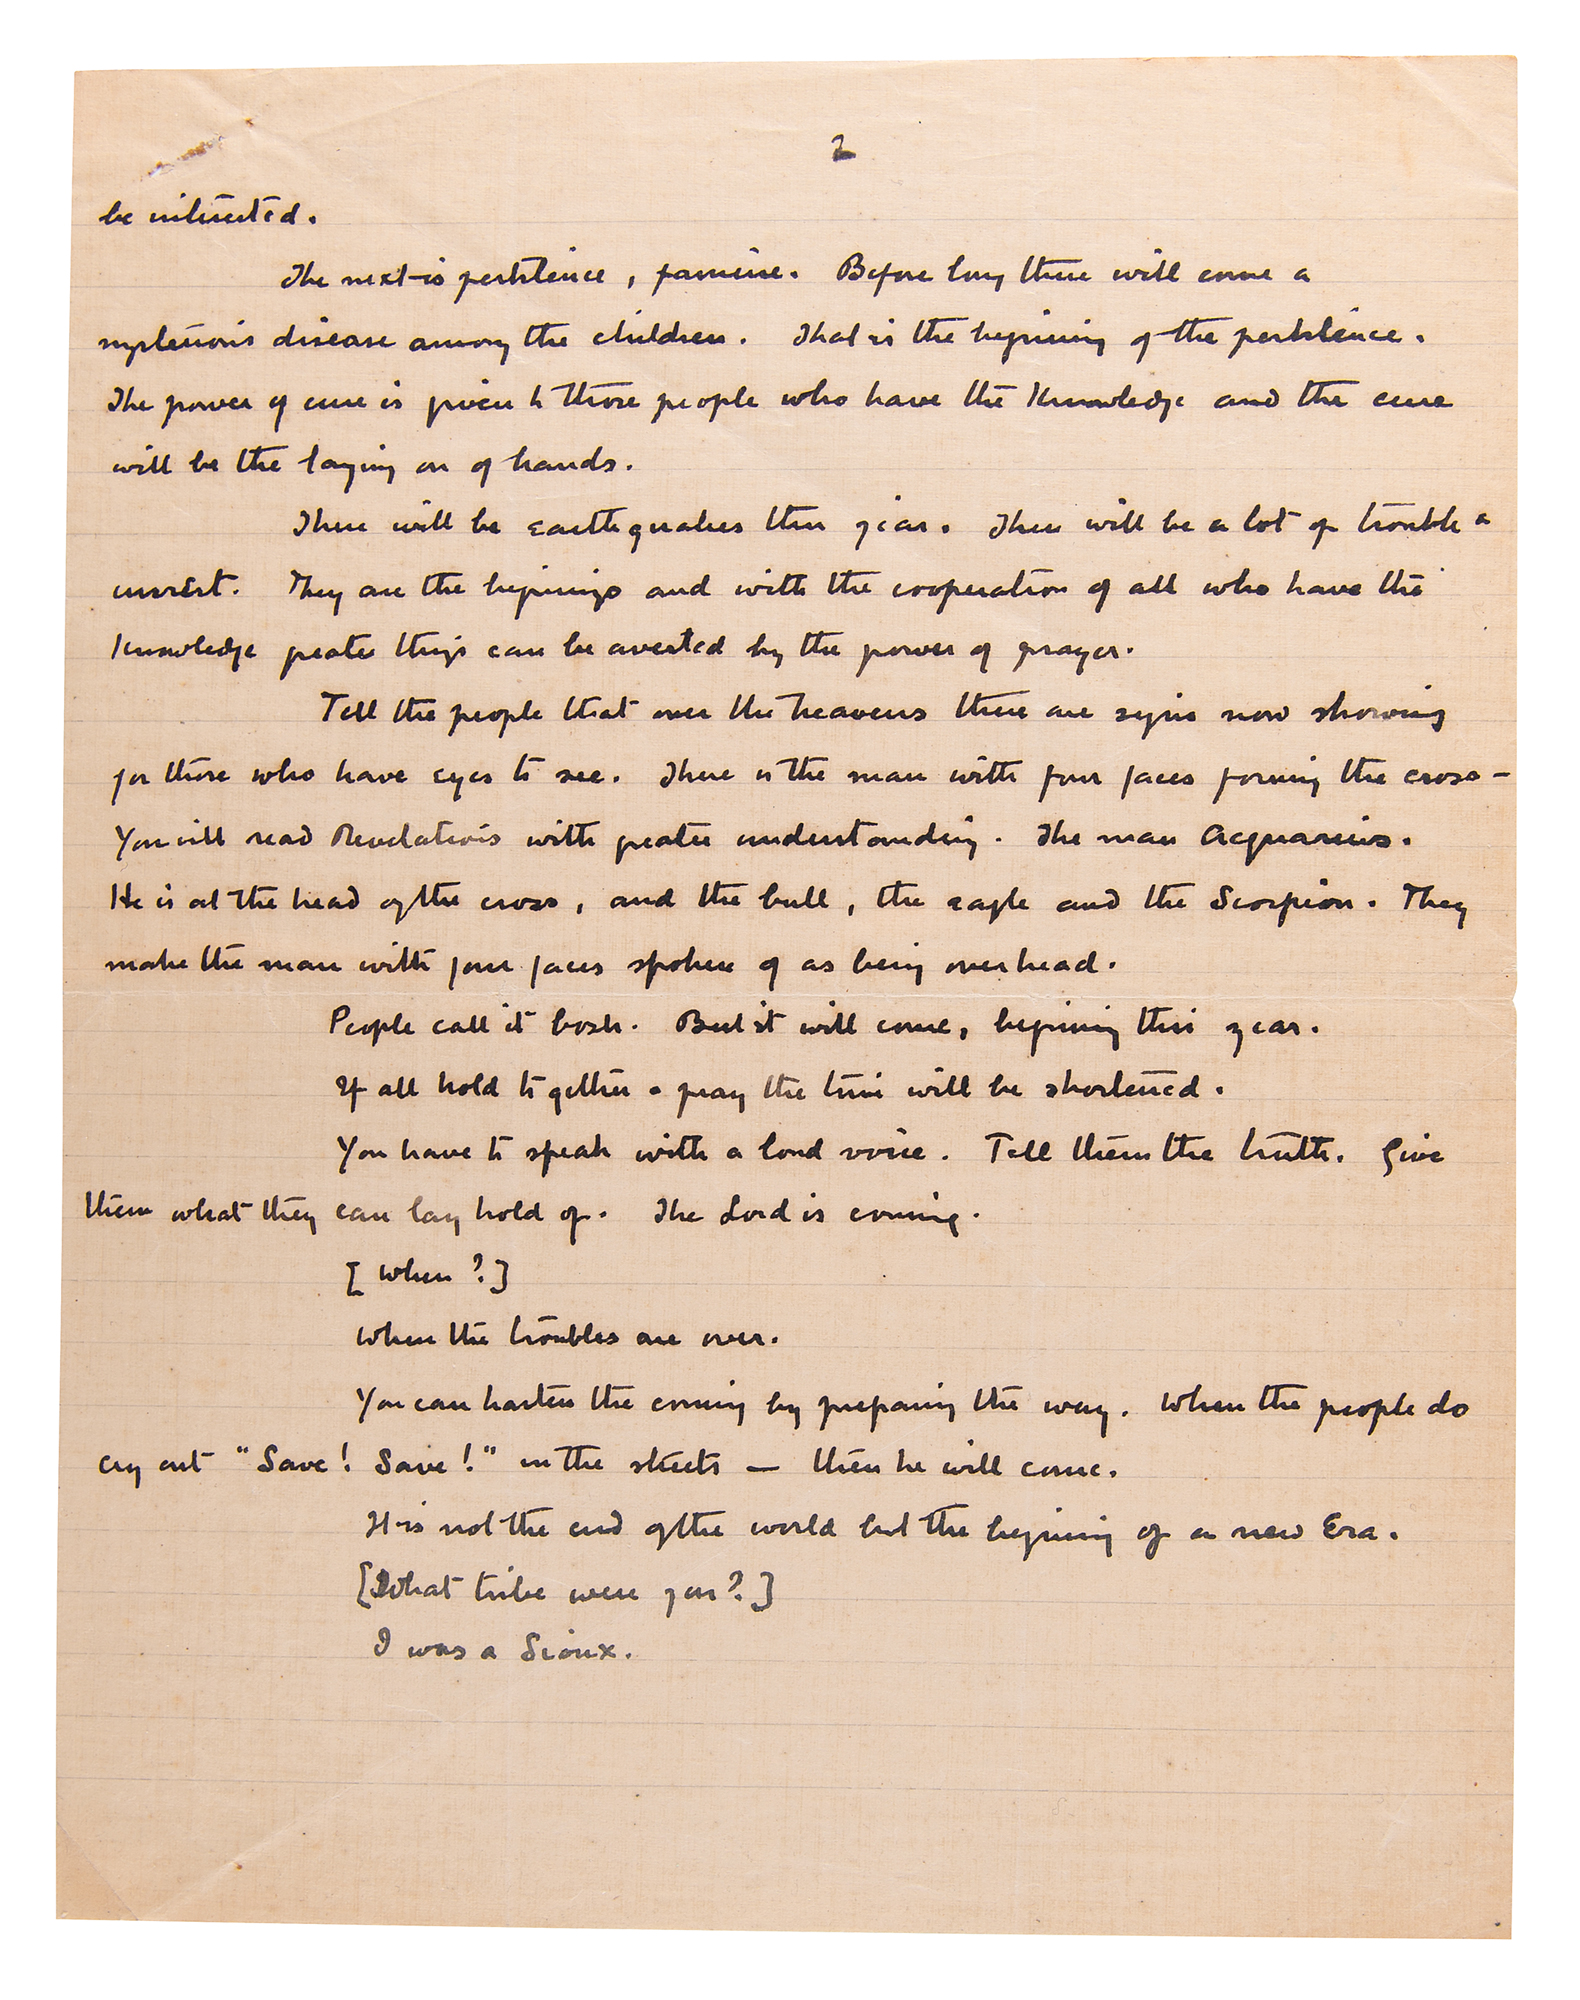 2
be interested.
The next is pestilence, famine. Before long there will come a
mysterious disease among the children. That is the begining of the pestilence.
The power of cure is given to those people who have the Knowledge and the cure
will be the laying on of hands.
There will be Earthquakes this year. There will be a lot of trouble &
unrest. They are the beginings and with the cooperation of all who have the
Knowledge greater things can be averted by the power of prayer.
Tell the people that over the heavens there are signs now showing
for those who have eyes to see. There is the man with four faces forming the cross -
You will read Revelations with greater understanding. The man Acquarius.
He is at the head of the cross, and the bull, the eagle and the Scorpion. They
make the man with four faces spoken of as being overhead.
People call it bosh. But it will come, begining this year.
If all hold together & pray the time will be shortened.
You have to speak with a loud voice. Tell them the truth. Give
them what they can lay hold of. The Lord is coming.
[When?]
When the troubles are over.
You can hasten the coming by preparing the way. When the people do
cry out "Save! Save!" in the streets — then he will come.
It is not the end of the world but the begining of a new Era.
[What tribe were you?]
I was a Sioux.